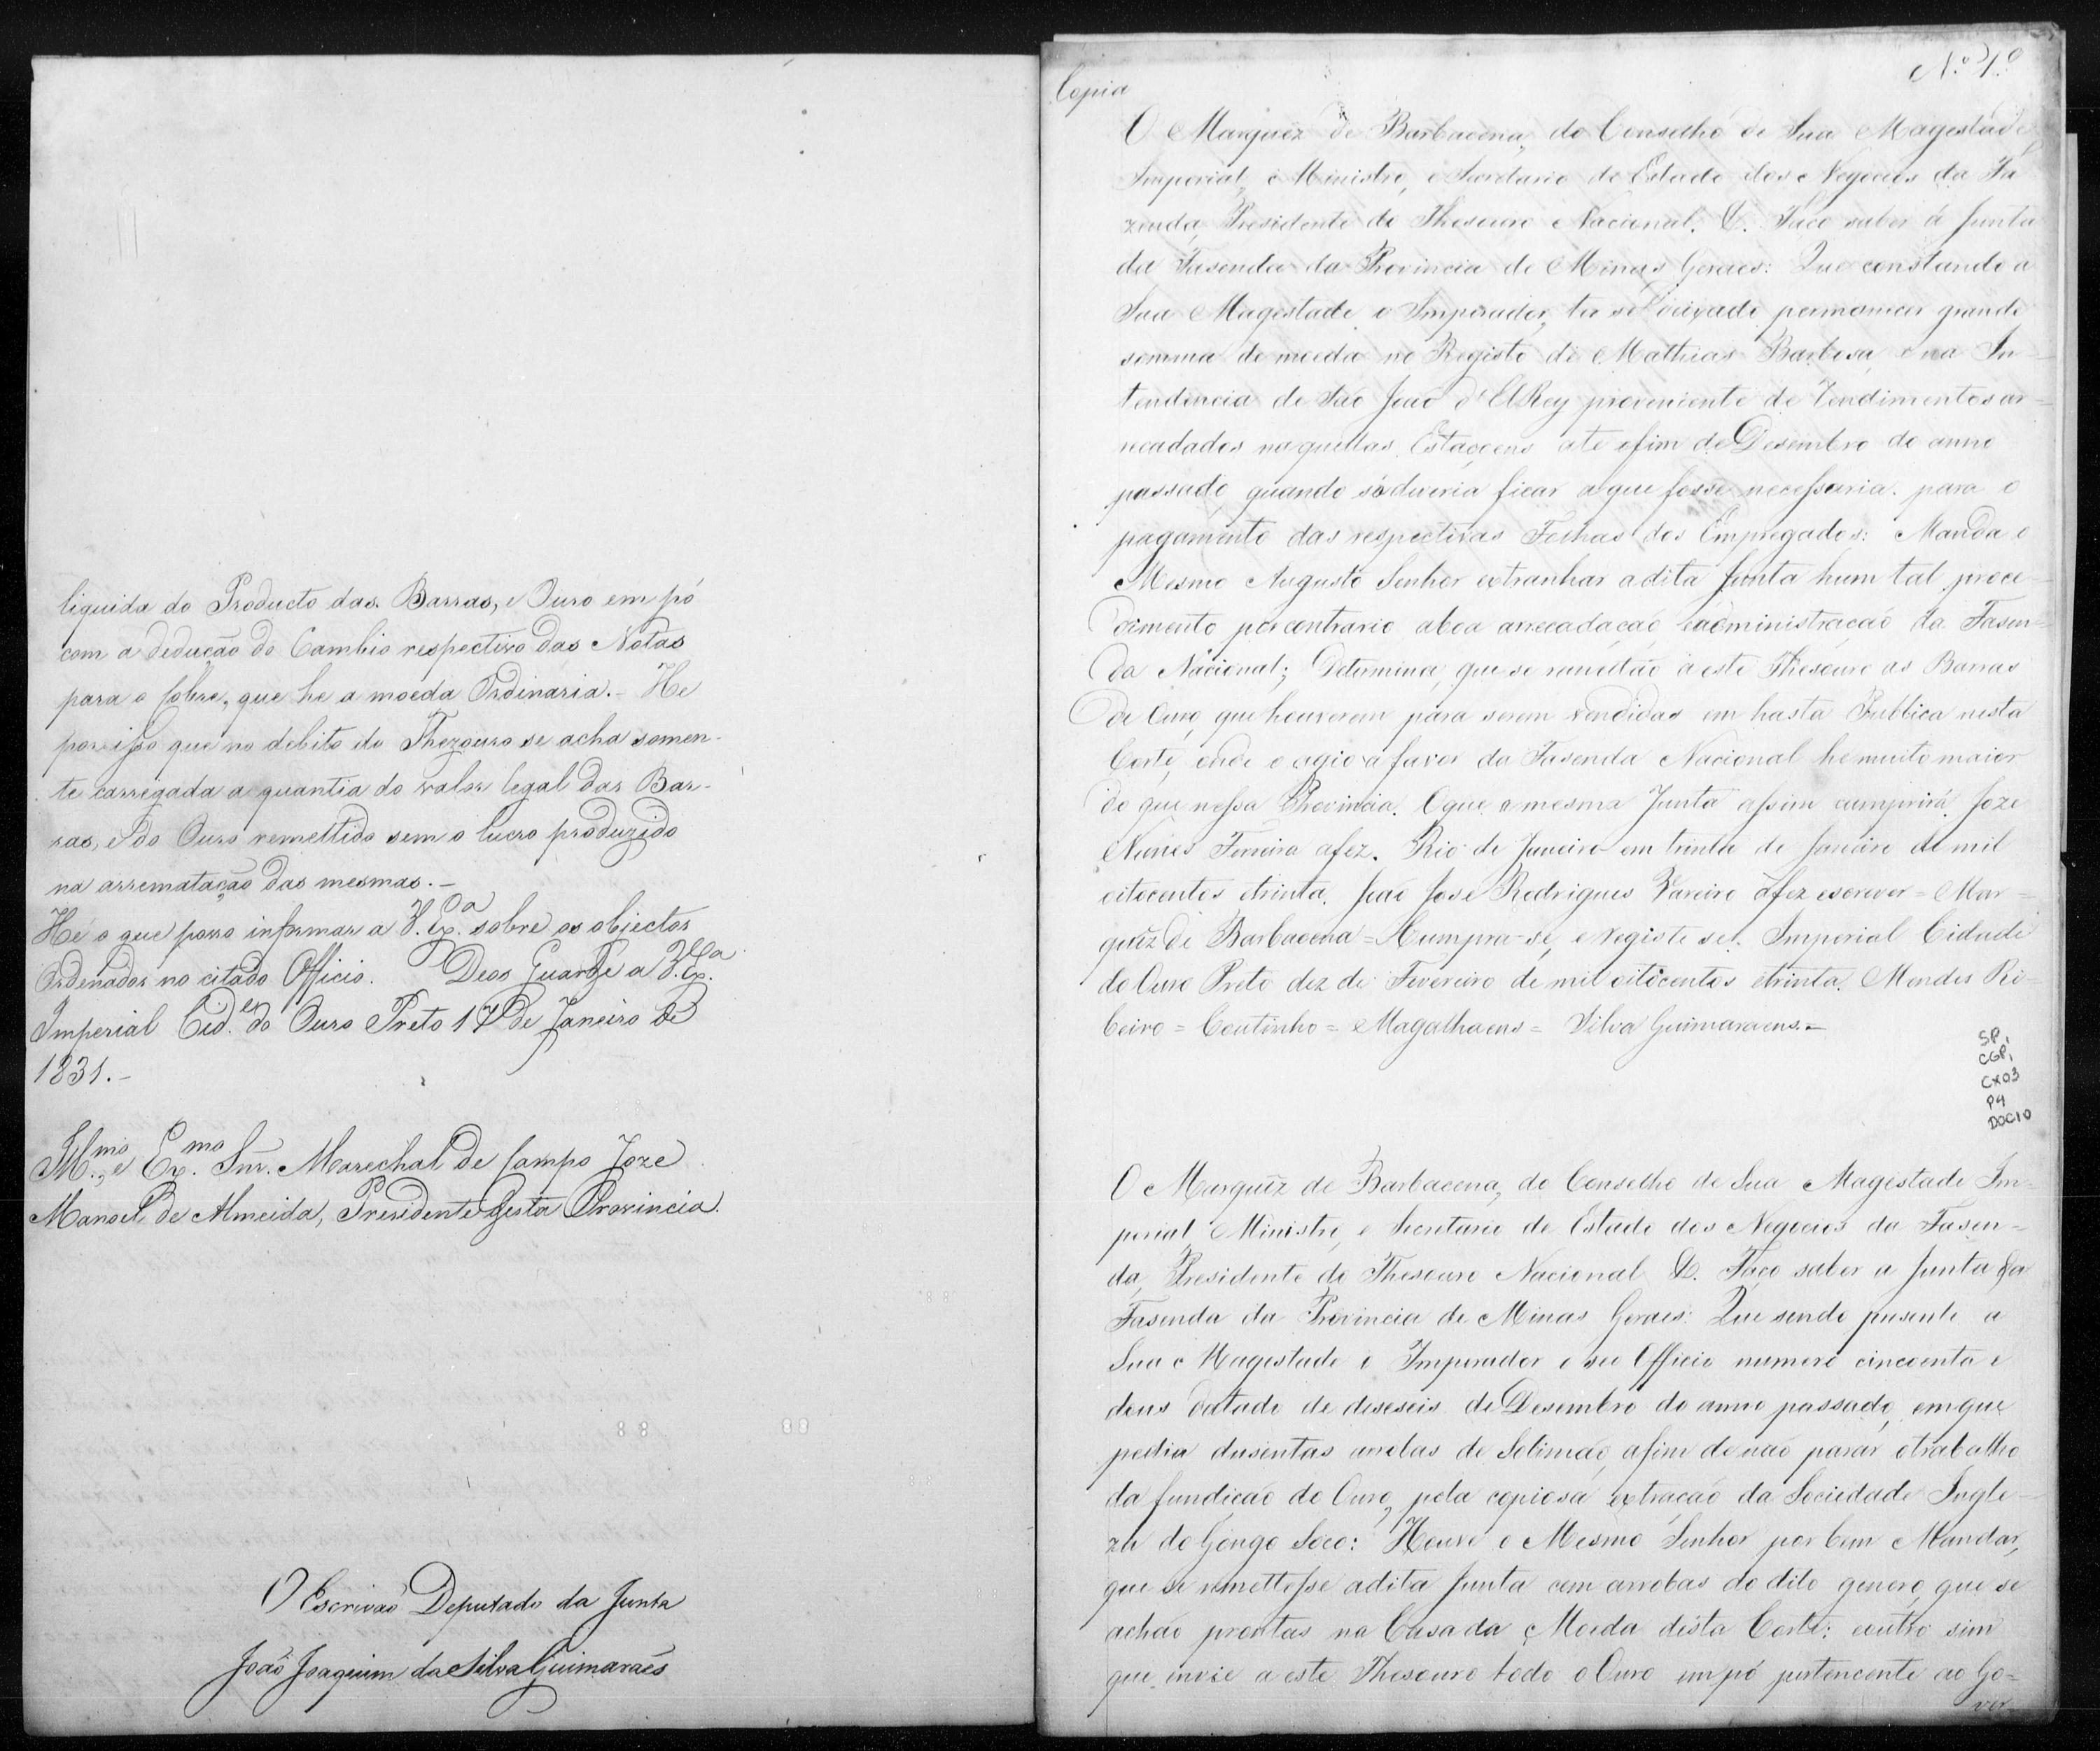 liquida do Producto das Barras, e Ouro em pó
com a dedução do Cambio respectivo das Notas
para o Cobre, que he a moeda Ordinaria. - He
por isso que no debito do Thezouro se acha somen-
te carregada a quantia do valor legal das Bar-
ras, e do Ouro remettido sem o lucro produzido
na arrematação das mesmas. -
He o que posso informar a V. Exa. sobre os objectos
Ordenados no citado Officio. Deos Guarde a V. Exa.
Imperial Cid.e do Ouro Preto 17 de Janeiro de
1831. -
Illmo. e Exmo. Snr. Marechal de Campo Joze
Manoel de Almeida, Presidente desta Provincia.
O Escrivaõ Deputado da Junta
Joaõ Joaquim da Silva Guimaraẽs
N.º 1.º
Copia
O Marquez de Barbacena, do Conselho de Sua Magestade
Imperial, e Ministro, e Secretario de Estado dos Negocios da Fa
zenda, Presidente do Thesouro Nacional. &. Faço saber á Junta
da Fasenda da Provincia de Minas Geraes: Que constando a
Sua Magestade o Imperador, ter se deixado permanecer grande
somma de moeda no Registo de Mathias Barbosa, e na In-
tendencia de Saõ Joaõ d'ElRey proveniente de Rendimentos ar=
recadados naquellas Estaçoens ate o fim de Desembro do anno
passado, quando só deveria ficar a que fosse necessaria para o
pagamento das respectivas Folhas dos Empregados: Manda o
Mesmo Augusto Senhor extranhar a dita Junta hum tal proce-
dimento por contrario a boa arrecadaçaõ, e administraçaõ da Fasen=
da Nacional; Determina, que se remettaõ a este Thesouro as Barras
de Ouro, que houverem para serem vendidas em hasta Publica nesta
Corte, onde o agio a favor da Fasenda Nacional he muito maior
do que nessa Provincia. O que a mesma Junta assim cumprirá. Joze
Nunes Ferreira a fez. Rio de Janeiro em trinta de Janeiro de mil
oitocentos e trinta. Joaõ José Rodrigues Vareiro a fez escrever = Mar=
quez de Barbacena = Cumpra-se, e registe se. Imperial Cidade
do Ouro Preto dez de Fevereiro de mil oitocentos e trinta. Mendes Ri-
beiro = Coutinho = Magalhaens = Silva Guimaraens. =
SP,
CGP,
CX03
P4
DOC10
O Marquez de Barbacena, do Conselho de Sua Magestade Im-
perial, Ministro, e Secretario de Estado dos Negocios da Fasen=
da, Presidente do Thesouro Nacional &. Faço saber a Junta da
Fasenda da Provincia de Minas Geraes: Que sendo presente a
Sua Magestade o Imperador o seu Officio numero cincoenta e
dous datado de deseseis de Desembro do anno passado, em que
pedia dusentas arrobas de Solimaõ, afim de naõ parar o trabalho
da fundiçaõ do Ouro, pela copiosa extraçaõ da Sociedade Ingle-
za do Gongo Soco: Houve o Mesmo Senhor por bem Mandar,
que se remettesse a dita Junta cem arrobas do dito genero, que se
achaõ prontas na Casa da Moeda desta Corte: e outro sim
que envie a este Thesouro todo o Ouro em pó pertencente ao Go=
ver-